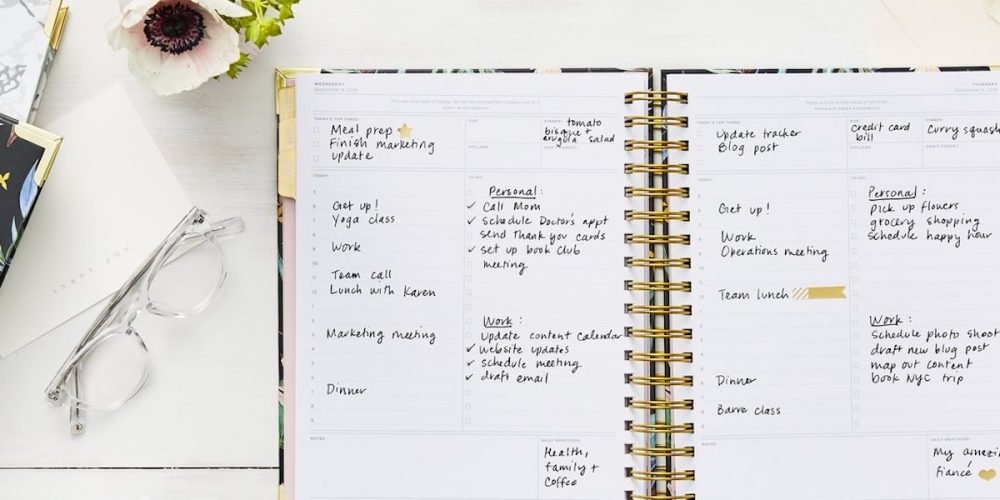 WEDNESDAY
TODAY'S TOP THREE:
Meal prep
Finish marketing
update
DUE:
DOLLARS
DINNER:
tomato
bisque +
arugula salad
DON'T FORGET:
TODAY:
Get up!
Yoga class
Work
Team call
Lunch with Karen
Marketing meeting
Dinner
TO-DO:
Personal:
✓ Call Mom
✓ Schedule Doctor's appt
send thank you cards
✓ set up book club
meeting
Work:
Update content calendar
✓ website updates
✓ schedule meeting
✓ draft email
NOTES:
DAILY GRATITUDE:
Health,
family +
Coffee
THURSDAY
TODAY'S TOP THREE:
Update tracker
Blog post
DUE:
credit card
bill
DOLLARS
DINNER:
Curry squash
DON'T FORGET:
TODAY:
Get up!
Work
Operations meeting
Team lunch
Dinner
Barre class
TO-DO:
Personal:
pick up flowers
grocery shopping
schedule happy hour
Work:
Schedule photo shoot
draft new blog post
map out content
book NYC trip
NOTES:
DAILY GRATITUDE:
My
fiancé
thank you